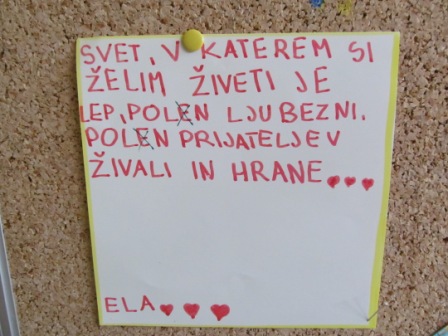 SVET, V KATEREM SI
ŽELIM ŽIVETI JE
LEP, POLEN LJUBEZNI.
POLEN PRIJATELJEV
ŽIVALI IN HRANE
ELA